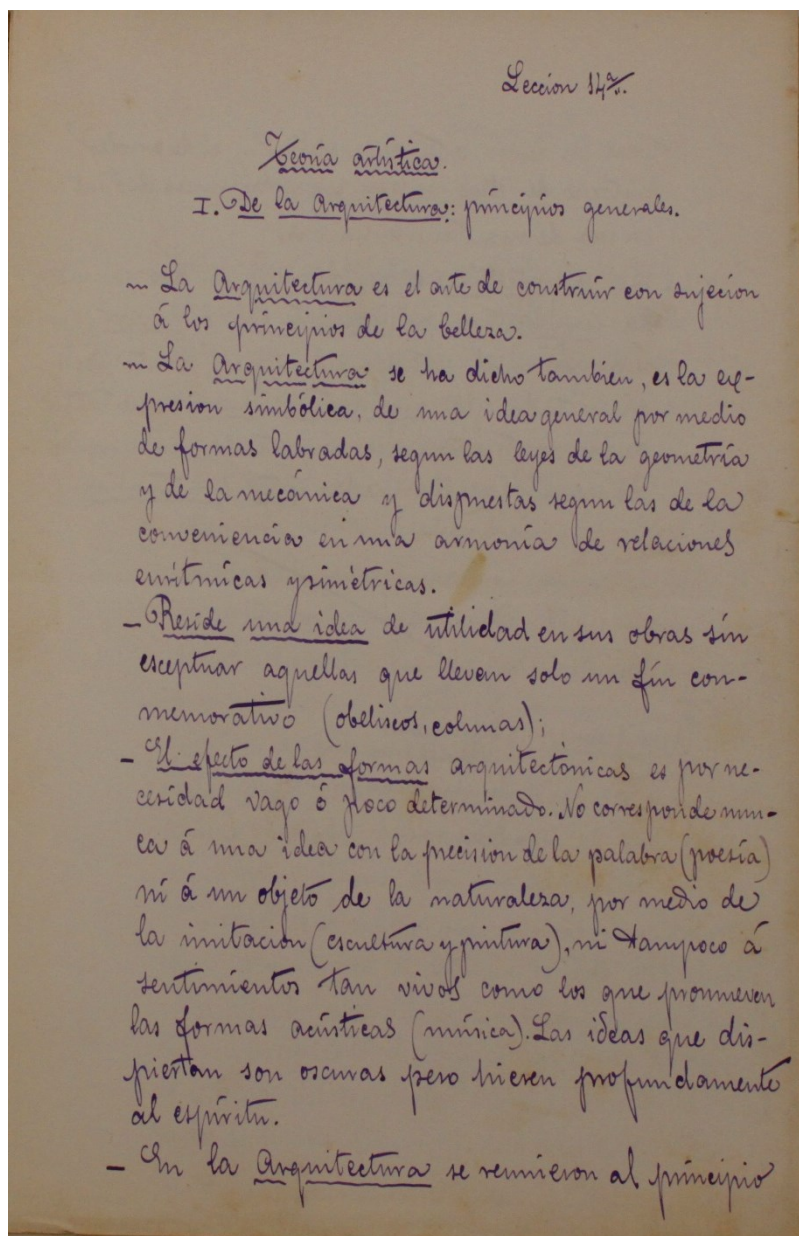 Leccion 14ª.
Teoría artística.
I. De la Arquitectura: principios generales.
– La Arquitectura es el arte de construir con sujecion
á los principios de la belleza.
– La Arquitectura se ha dicho tambien, es la ex-
presion simbólica, de una idea general por medio
de formas labradas, segun las leyes de la geometría
y de la mecánica y dispuestas segun las de la
conveniencia en una armonía de relaciones
eurítmicas y simétricas.
– Reside una idea de utilidad en sus obras sin
esceptuar aquellas que llevan solo un fín con-
memorativo (obeliscos, colunas);
– El efecto de las formas arquitectónicas es por ne-
cesidad vago ó poco determinado. No corresponde nun-
ca á una idea con la precision de la palabra (poesía)
ni á un objeto de la naturaleza, por medio de
la imitacion (escultura y pintura), ni tampoco á
sentimientos tan vivos como los que promueven
las formas acústicas (música). Las ideas que dis-
piertan son oscuras pero hieren profundamente
al espíritu.
– En la Arquitectura se reunieron al principio